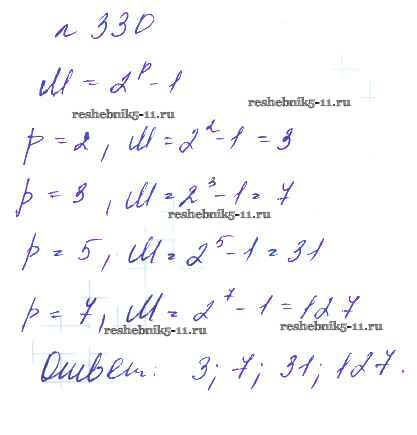 № 330
M = 2^p - 1
reshebnik5-11.ru
reshebnik5-11.ru
p = 2, M = 2^2 - 1 = 3
p = 3, M = 2^3 - 1 = 7
reshebnik5-11.ru
p = 5, M = 2^5 - 1 = 31
p = 7, M = 2^7 - 1 = 127
reshebnik5-11.ru
reshebnik5-11.ru
Ответ: 3; 7; 31; 127.